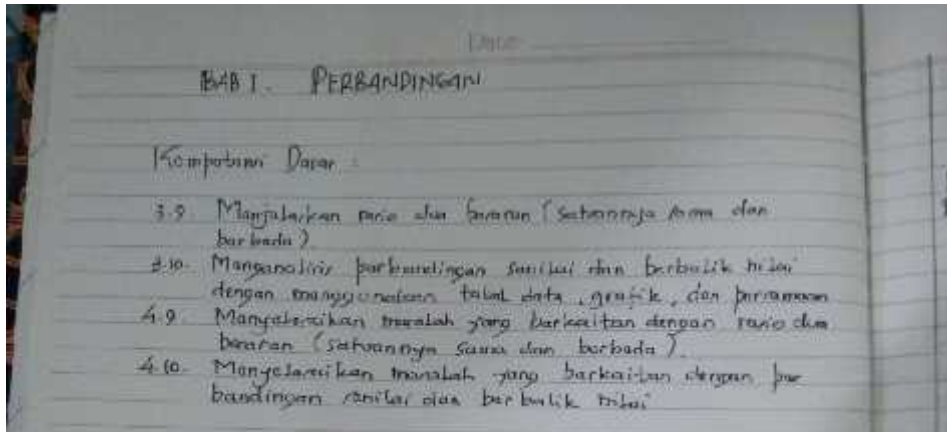 Date
BAB I. PERBANDINGAN
Kompetensi Dasar :
3.9. Menjelaskan rasio dua besaran (satuannya sama dan
berbeda)
3.10. Menganalisis perbandingan senilai dan berbalik nilai
dengan menggunakan tabel data, grafik, dan persamaan
4.9. Menyelesaikan masalah yang berkaitan dengan rasio dua
besaran (satuannya sama dan berbeda).
4.10. Menyelesaikan masalah yang berkaitan dengan per
bandingan senilai dan berbalik nilai